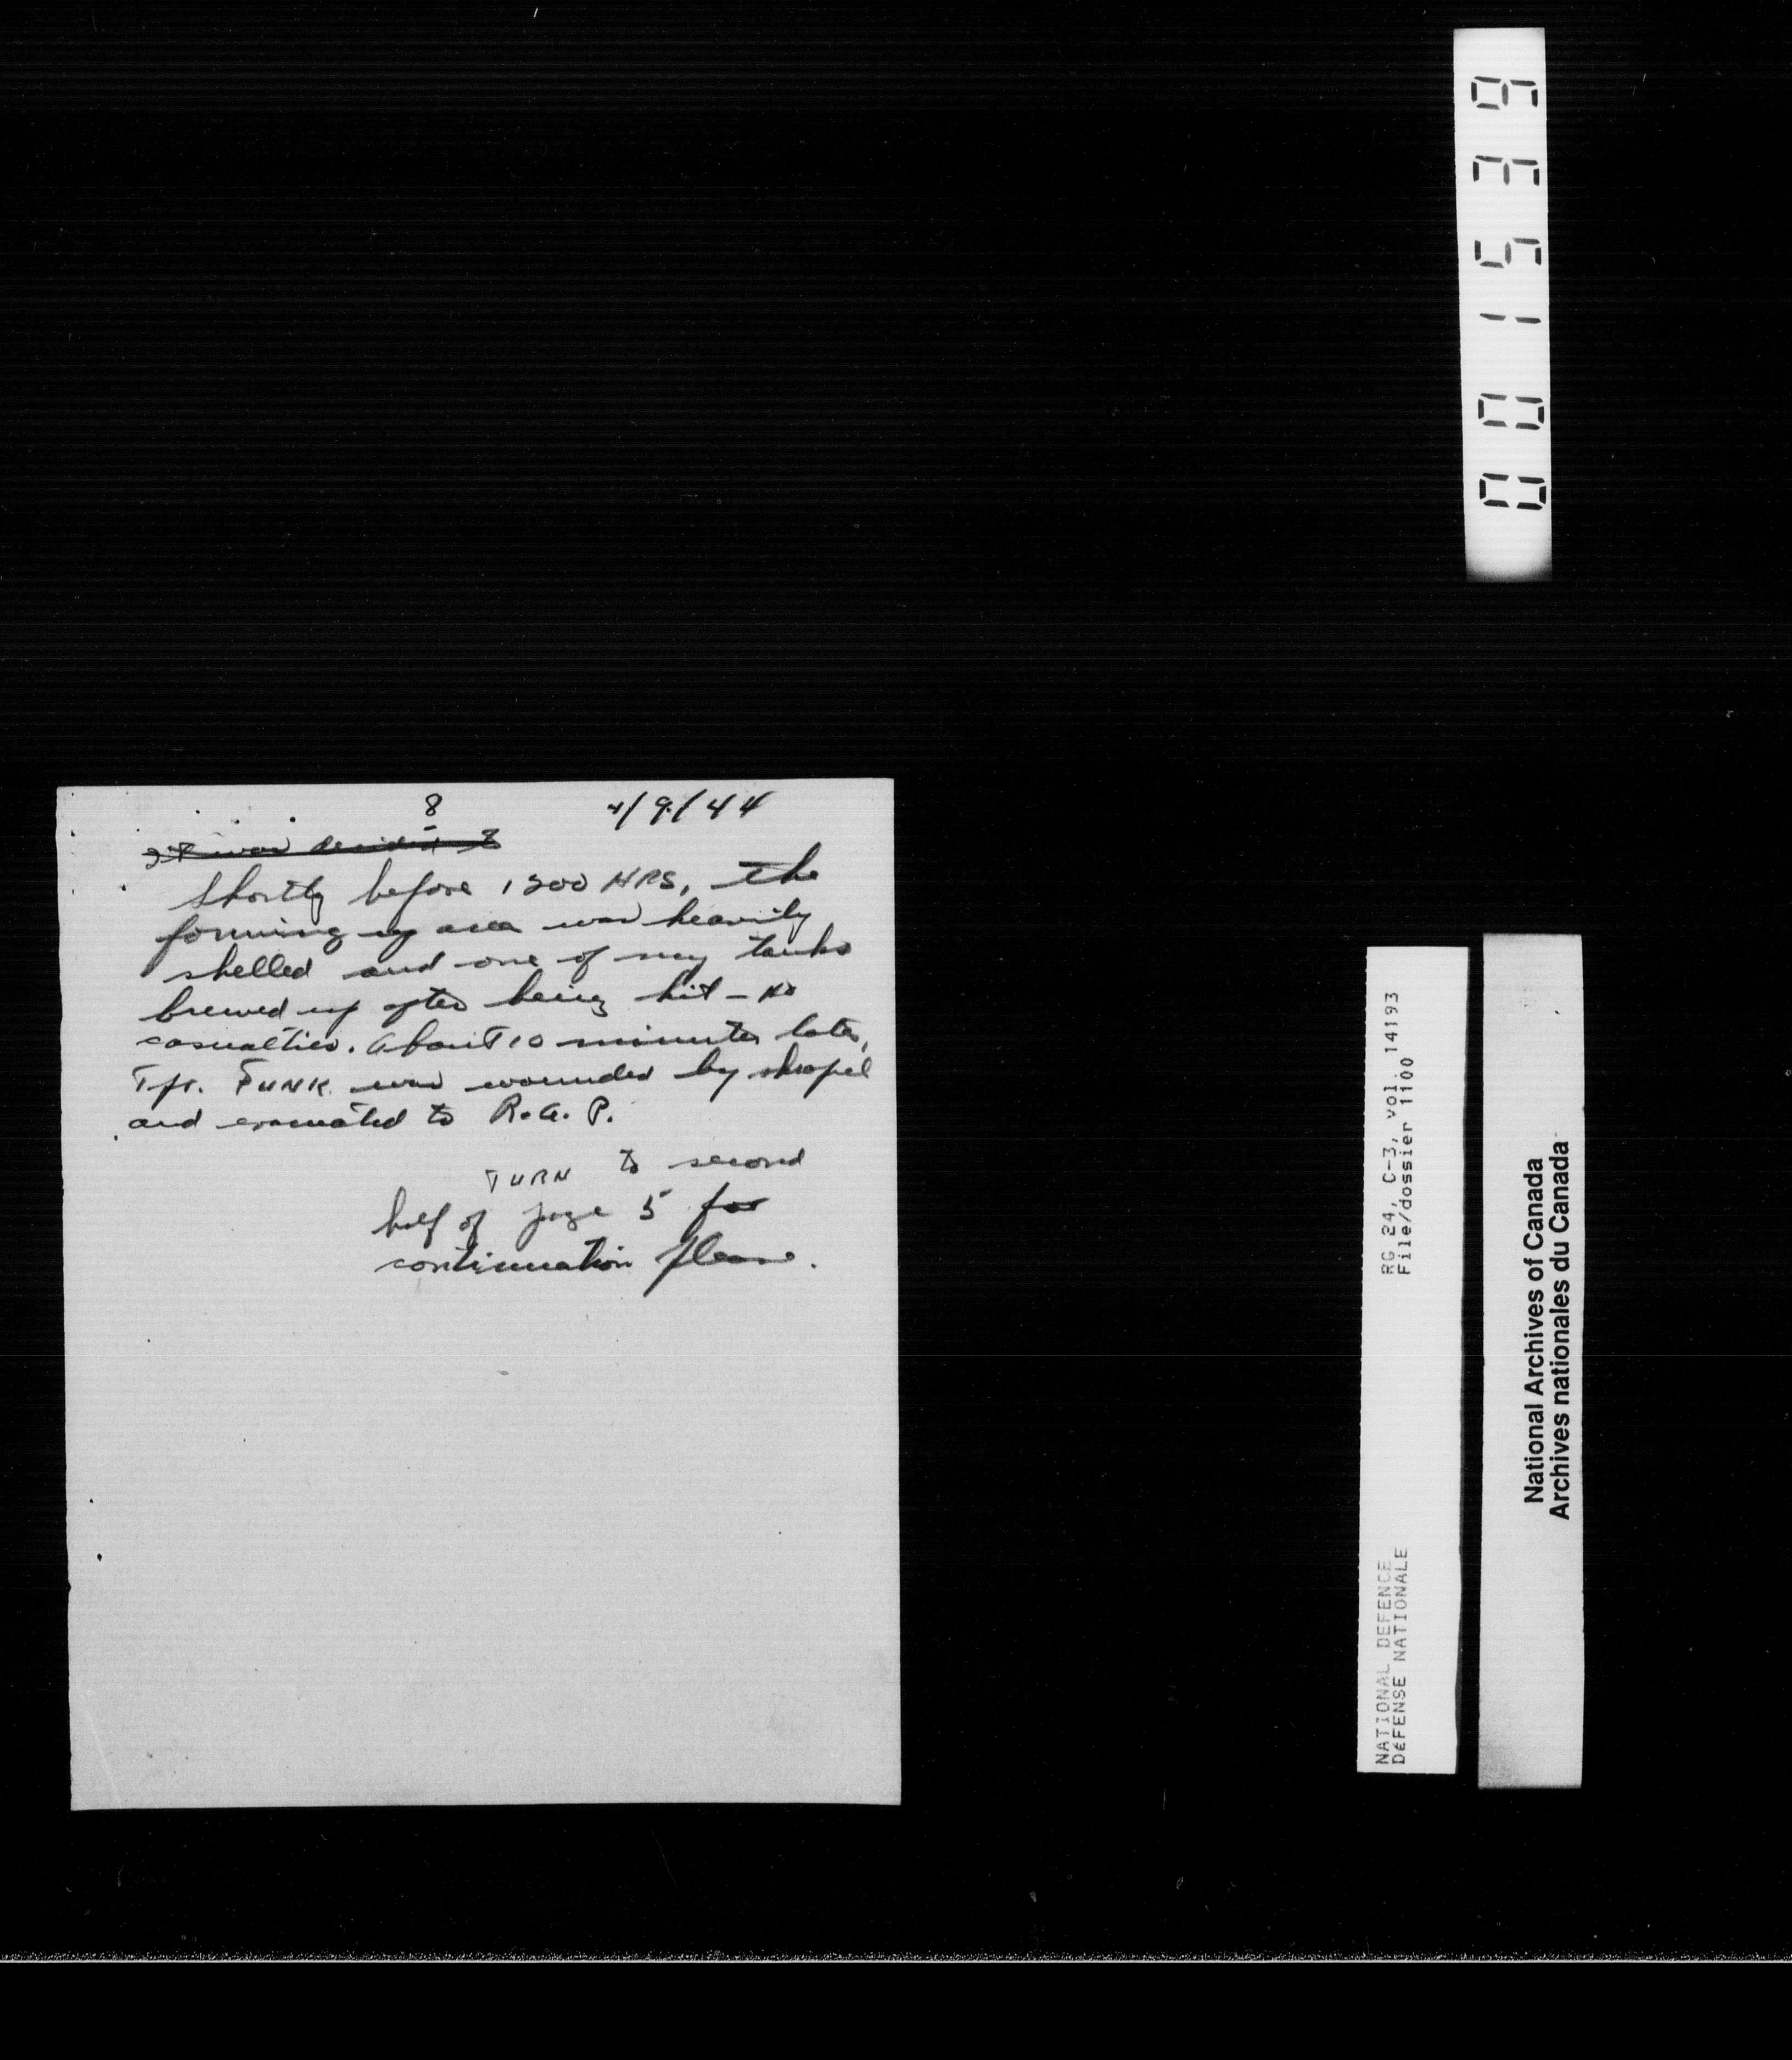 8
4/9/44
It was decided to
Shortly before 1200 HRS, the
forming up area was heavily
shelled and one of my tanks
brewed up after being hit - no
casualties. About 10 minutes later,
Tpr. FUNK was wounded by shrapel
and evacuated to R.A.P.
TURN to second
half of page 5 for
continuation please.
001539
RG 24, C-3, vol. 14193
File/dossier 1100
NATIONAL DEFENCE
DéFENSE NATIONALE
National Archives of Canada
Archives nationales du Canada